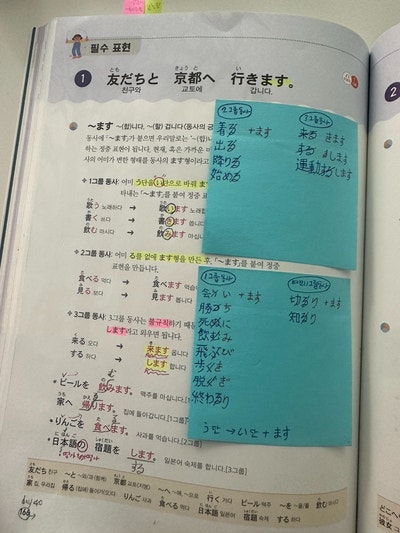 필수 표현
1 友だちと 京都へ 行きます。
とも きょうと い
친구와 교토에 갑니다.
~ます ~(합)니다, ~(할) 겁니다
동사에 「~ます」가 붙으면 우리말로는 '~(합)
하는 정중 표현입니다. 현재, 혹은 가까운 미
사의 어미가 변한 형태를 동사의 ます형이라고
1그룹 동사: 어미 う단을 い단으로 바꿔 ます
바내는 「~ます」를 붙여 정중
歌う 노래하다 → 歌います 노래합
書く 쓰다 → 書きます
飲む 마시다 → 飲みます 마십니
2그룹 동사: 어미 る를 없애 ます형을 만든 후, 「~ます」를 붙여 정중
표현을 만듭니다.
食べる 먹다 → 食べます 먹습
見る 보다 → 見ます 봅니
3그룹 동사: 3그룹 동사는 불규칙하기 때문
します라고 외우면 됩니다.
来る 오다 → 来ます 옵니다
する 하다 → します 합니다
ビールを 飲みます。 맥주를 마십니다.[1
家へ 帰ります。 집에 돌아갑니다.[1그룹]
りんごを 食べます。 사과를 먹습니다.[2그
日本語の 宿題を します。 일본어 숙제를 합니다.[3그룹]
する
友だち 친구 ~と ~와/과 (함께) 京都 교토(지명) ~へ ~에, ~으로 行く 가다 ビール 맥주 ~を ~을/를 飲む 마시다
家 집, 우리집 帰る (집에) 돌아가(오)다 りんご 사과 食べる 먹다 日本語 일본어 宿題 숙제 する 하다
166
2그룹동사
着る +ます
出る
降りる
始める
3그룹동사
来る きます
する します
運動する します
1그룹동사
会い +ます
勝ち
死ぬに
飲むみ
飛ぶび
歩くき
脱ぐぎ
終わるり
う단 → い단 + ます
예외1그룹동사
切るり +ます
知るり
2